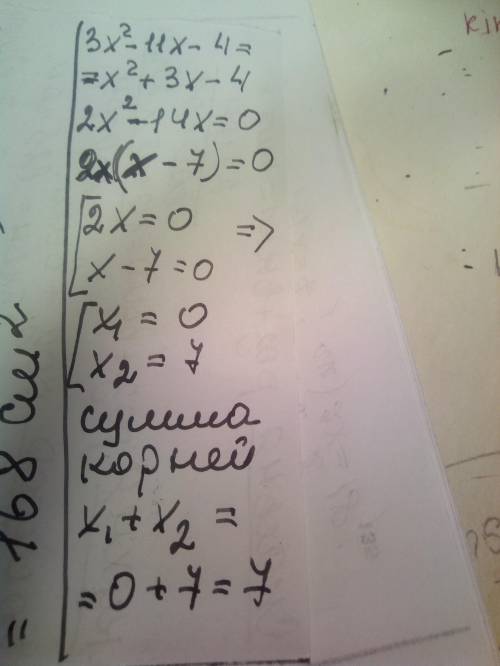 3x² - 11x - 4 =
= x² + 3x - 4
2x² - 14x = 0
2x(x - 7) = 0
[2x = 0 =>
x - 7 = 0
[x₁ = 0
x₂ = 7
сумма
корней
x₁ + x₂ =
= 0 + 7 = 7
= 168 см²
kir